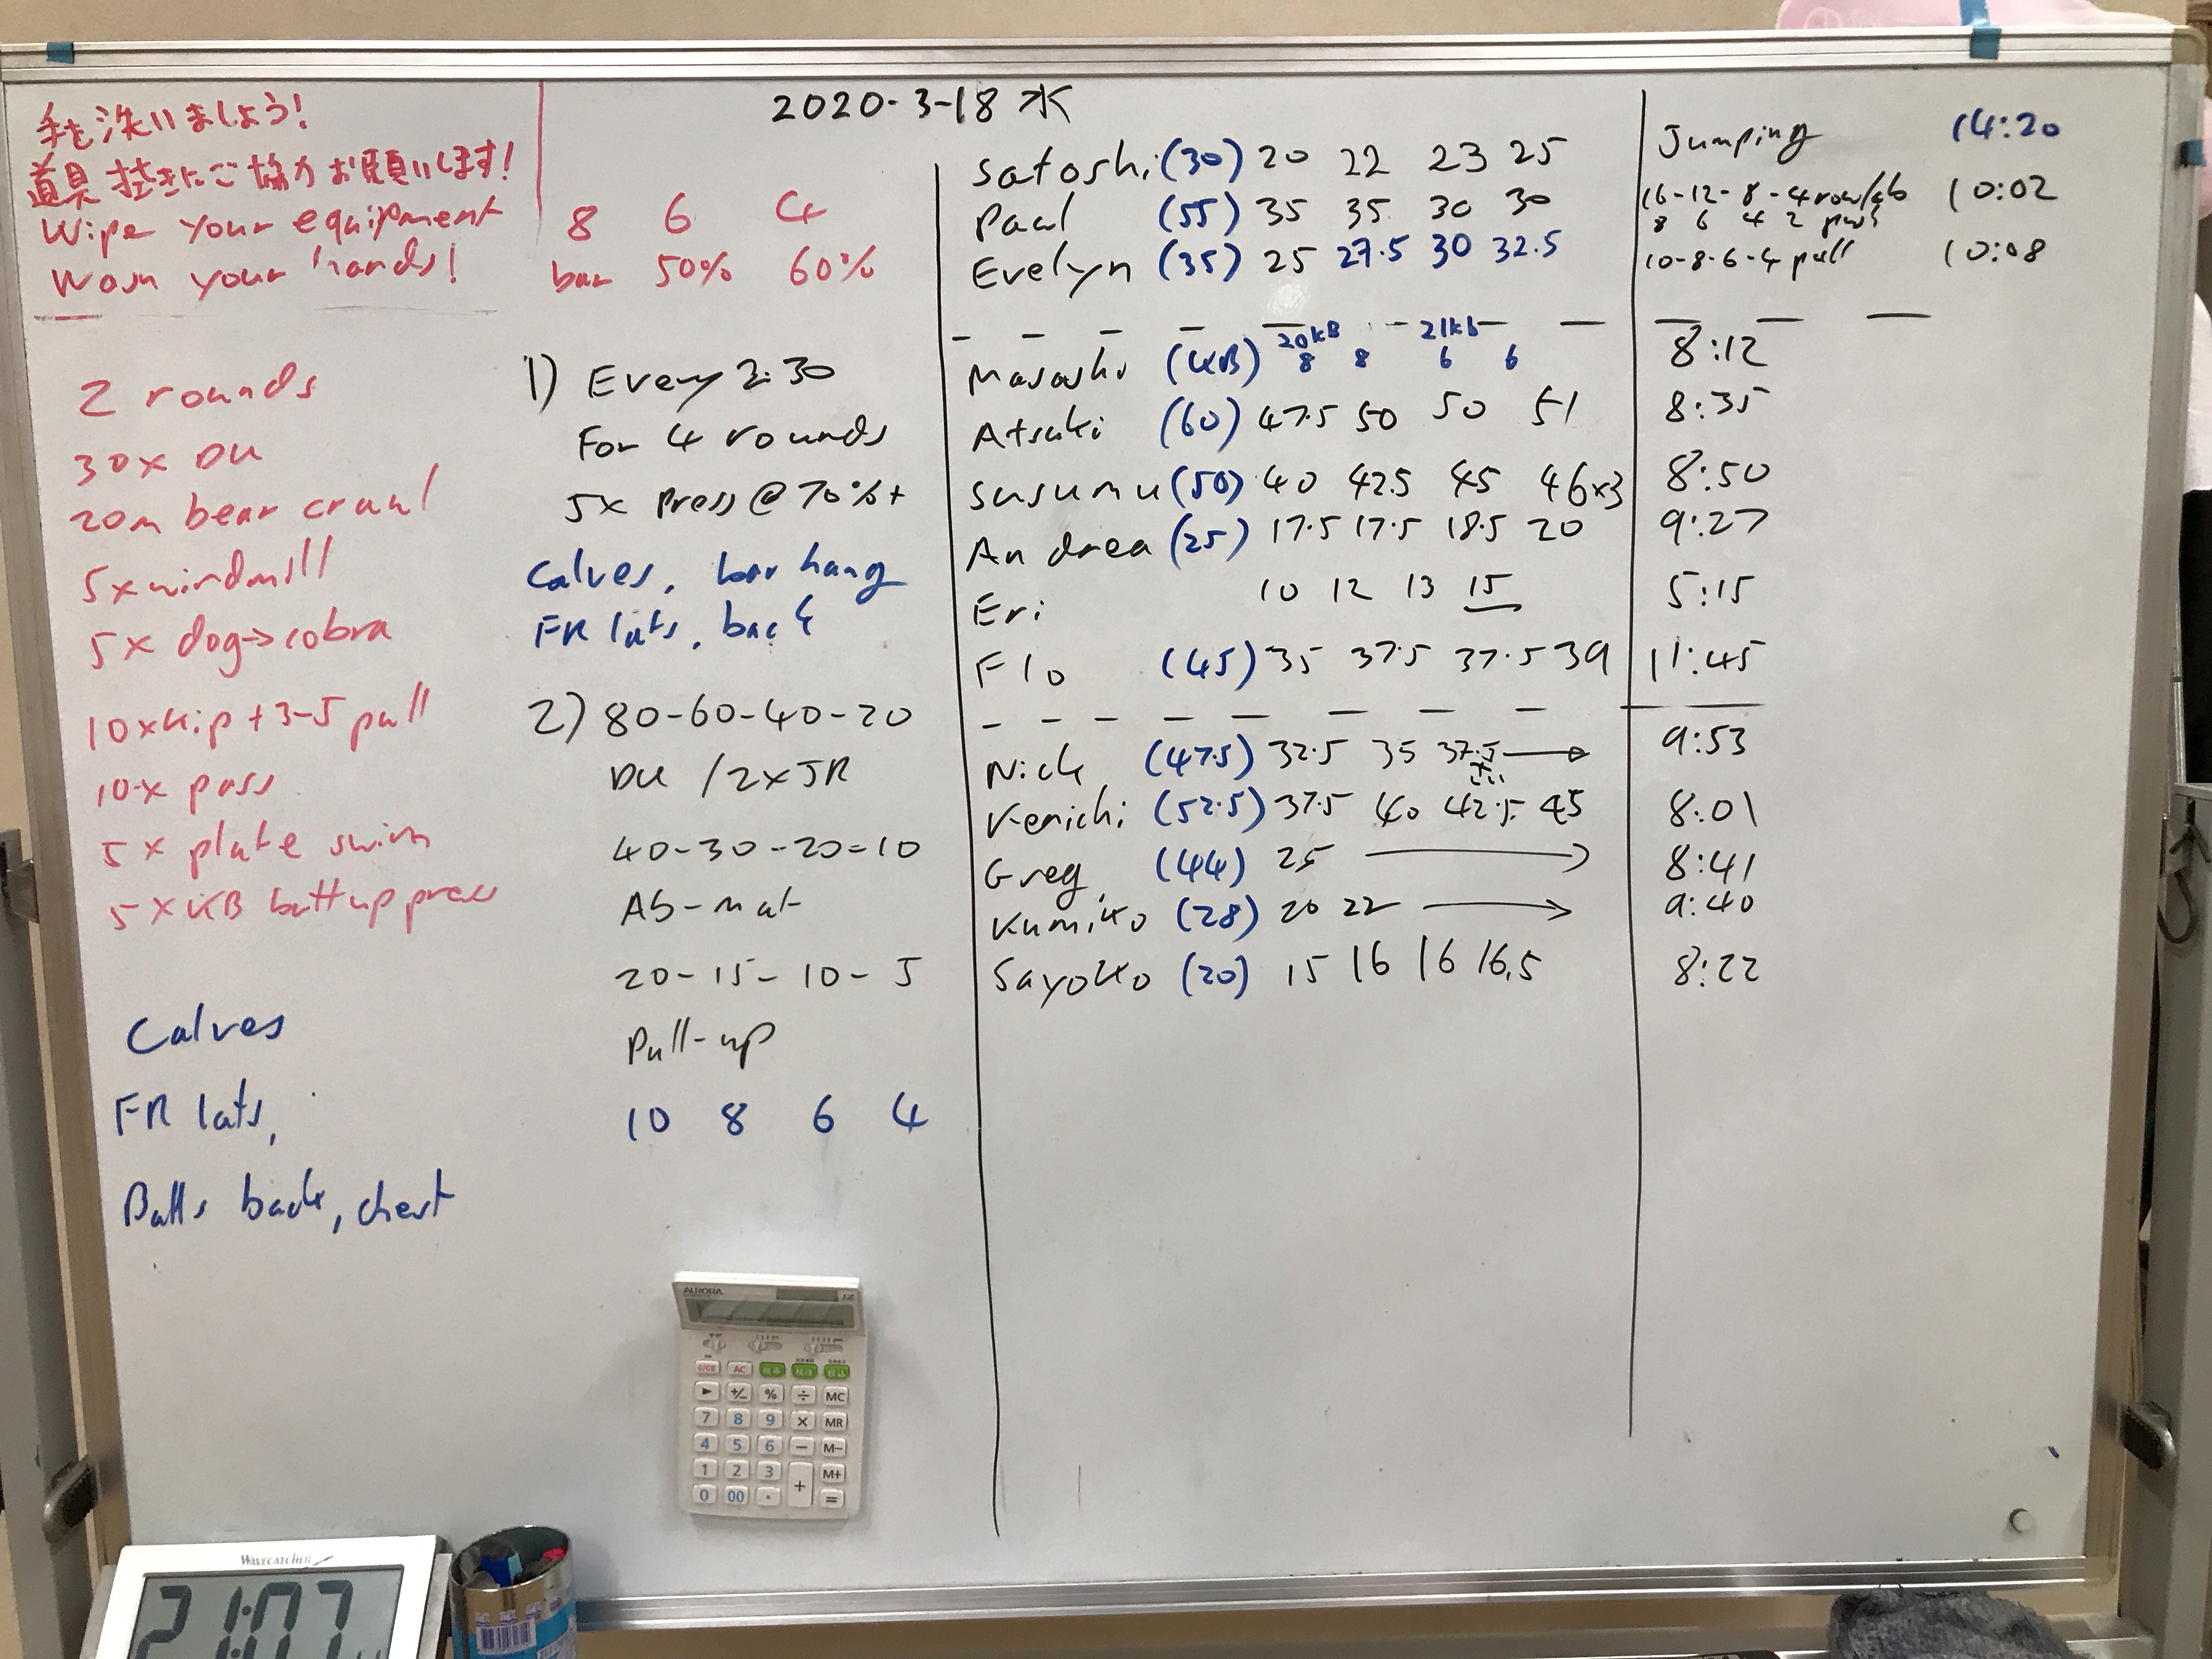 2020-3-18 水
手を洗いましょう!
道具拭きにご協力お願いします!
Wipe your equipment
Wash your hands!
8 6 4
bar 50% 60%
2 rounds
30x DU
20m bear crawl
5x windmill
5x dog→cobra
10xkip+3-5 pull
10x pass
5x plate swim
5xKB bottup press
Calves
FR lats,
Balls back, chest
1) Every 2:30
For 4 rounds
5x Press @ 70%+
Calves, bar hang
FR lats, back
2) 80-60-40-20
DU /2xJR
40-30-20-10
Ab-mat
20-15-10-5
Pull-up
10 8 6 4
Satoshi (30) 20 22 23 25 Jumping 14:20
Paul (55) 35 35 30 30 16-12-8-4 row/ab 10:02
8 6 4 2
Evelyn (35) 25 27.5 30 32.5 10-8-6-4 pull 10:08
20KB 21kb
Masashi (KB) 8 8 6 6 8:12
Atsuki (60) 47.5 50 50 51 8:35
Susumu (50) 40 42.5 45 46x3 8:50
Andrea (25) 17.5 17.5 18.5 20 9:27
Eri 10 12 13 15 5:15
Flo (45) 35 37.5 37.5 39 11:45
Nick (47.5) 32.5 35 37.5 → 9:53
Kenichi (52.5) 37.5 40 42.5 45 8:01
Greg (44) 25 → 8:41
Kumiko (28) 20 22 → 9:40
Sayoko (20) 15 16 16 16.5 8:22
AURORA
C/CE AC 税率 税抜 税込
► +/- % ÷ MC
7 8 9 × MR
4 5 6 − M−
1 2 3 + M+
0 00 · =
WAVECATCHER
21:07